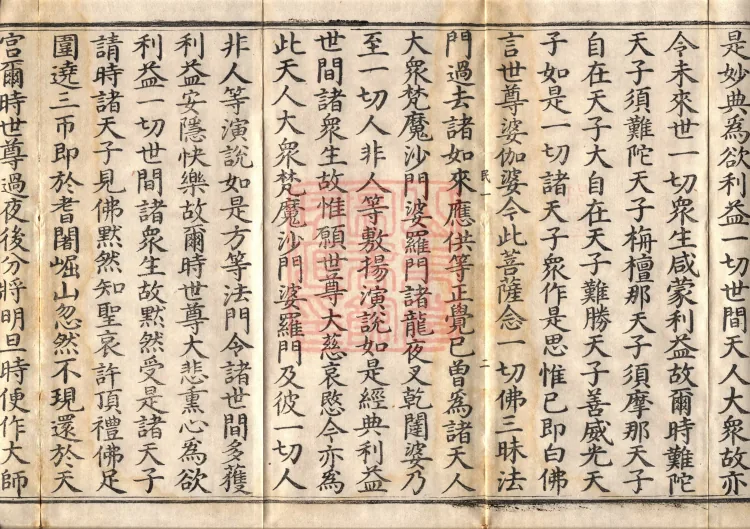 是妙典爲欲利益一切世間天人大衆故亦
令未來世一切衆生咸蒙利益故爾時難陀
天子須難陀天子栴檀那天子須摩那天子
自在天子大自在天子難勝天子善威光天
子如是一切諸天子衆作是思惟已即白佛
言世尊婆伽婆今此菩薩念一切佛三昧法
民一
二
門過去諸如來應供等正覺已曽爲諸天人
大衆梵魔沙門婆羅門諸龍夜叉乾闥婆乃
至一切人非人等敷揚演說如是經典利益
世間諸衆生故惟願世尊大慈哀愍今亦爲
此天人大衆梵魔沙門婆羅門及彼一切人
非人等演說如是方等法門令諸世間多獲
利益安隱快樂故爾時世尊大悲熏心爲欲
利益一切世間諸衆生故黙然受是諸天子
請時諸天子見佛黙然知聖哀許頂禮佛足
圍遶三帀即於耆闍崛山忽然不現還於天
宮爾時世尊過夜後分將明旦時便作大師